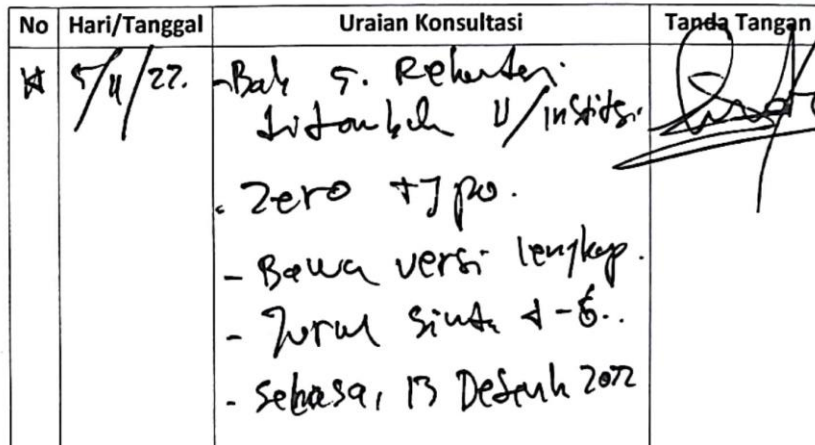 No Hari/Tanggal Uraian Konsultasi Tanda Tangan
5/11/22. - Bab 5. 
ditambah U/institsi.
- Zero typo.
- Bawa versi lengkap.
- Jurnal sinta
- selasa, 13 2022